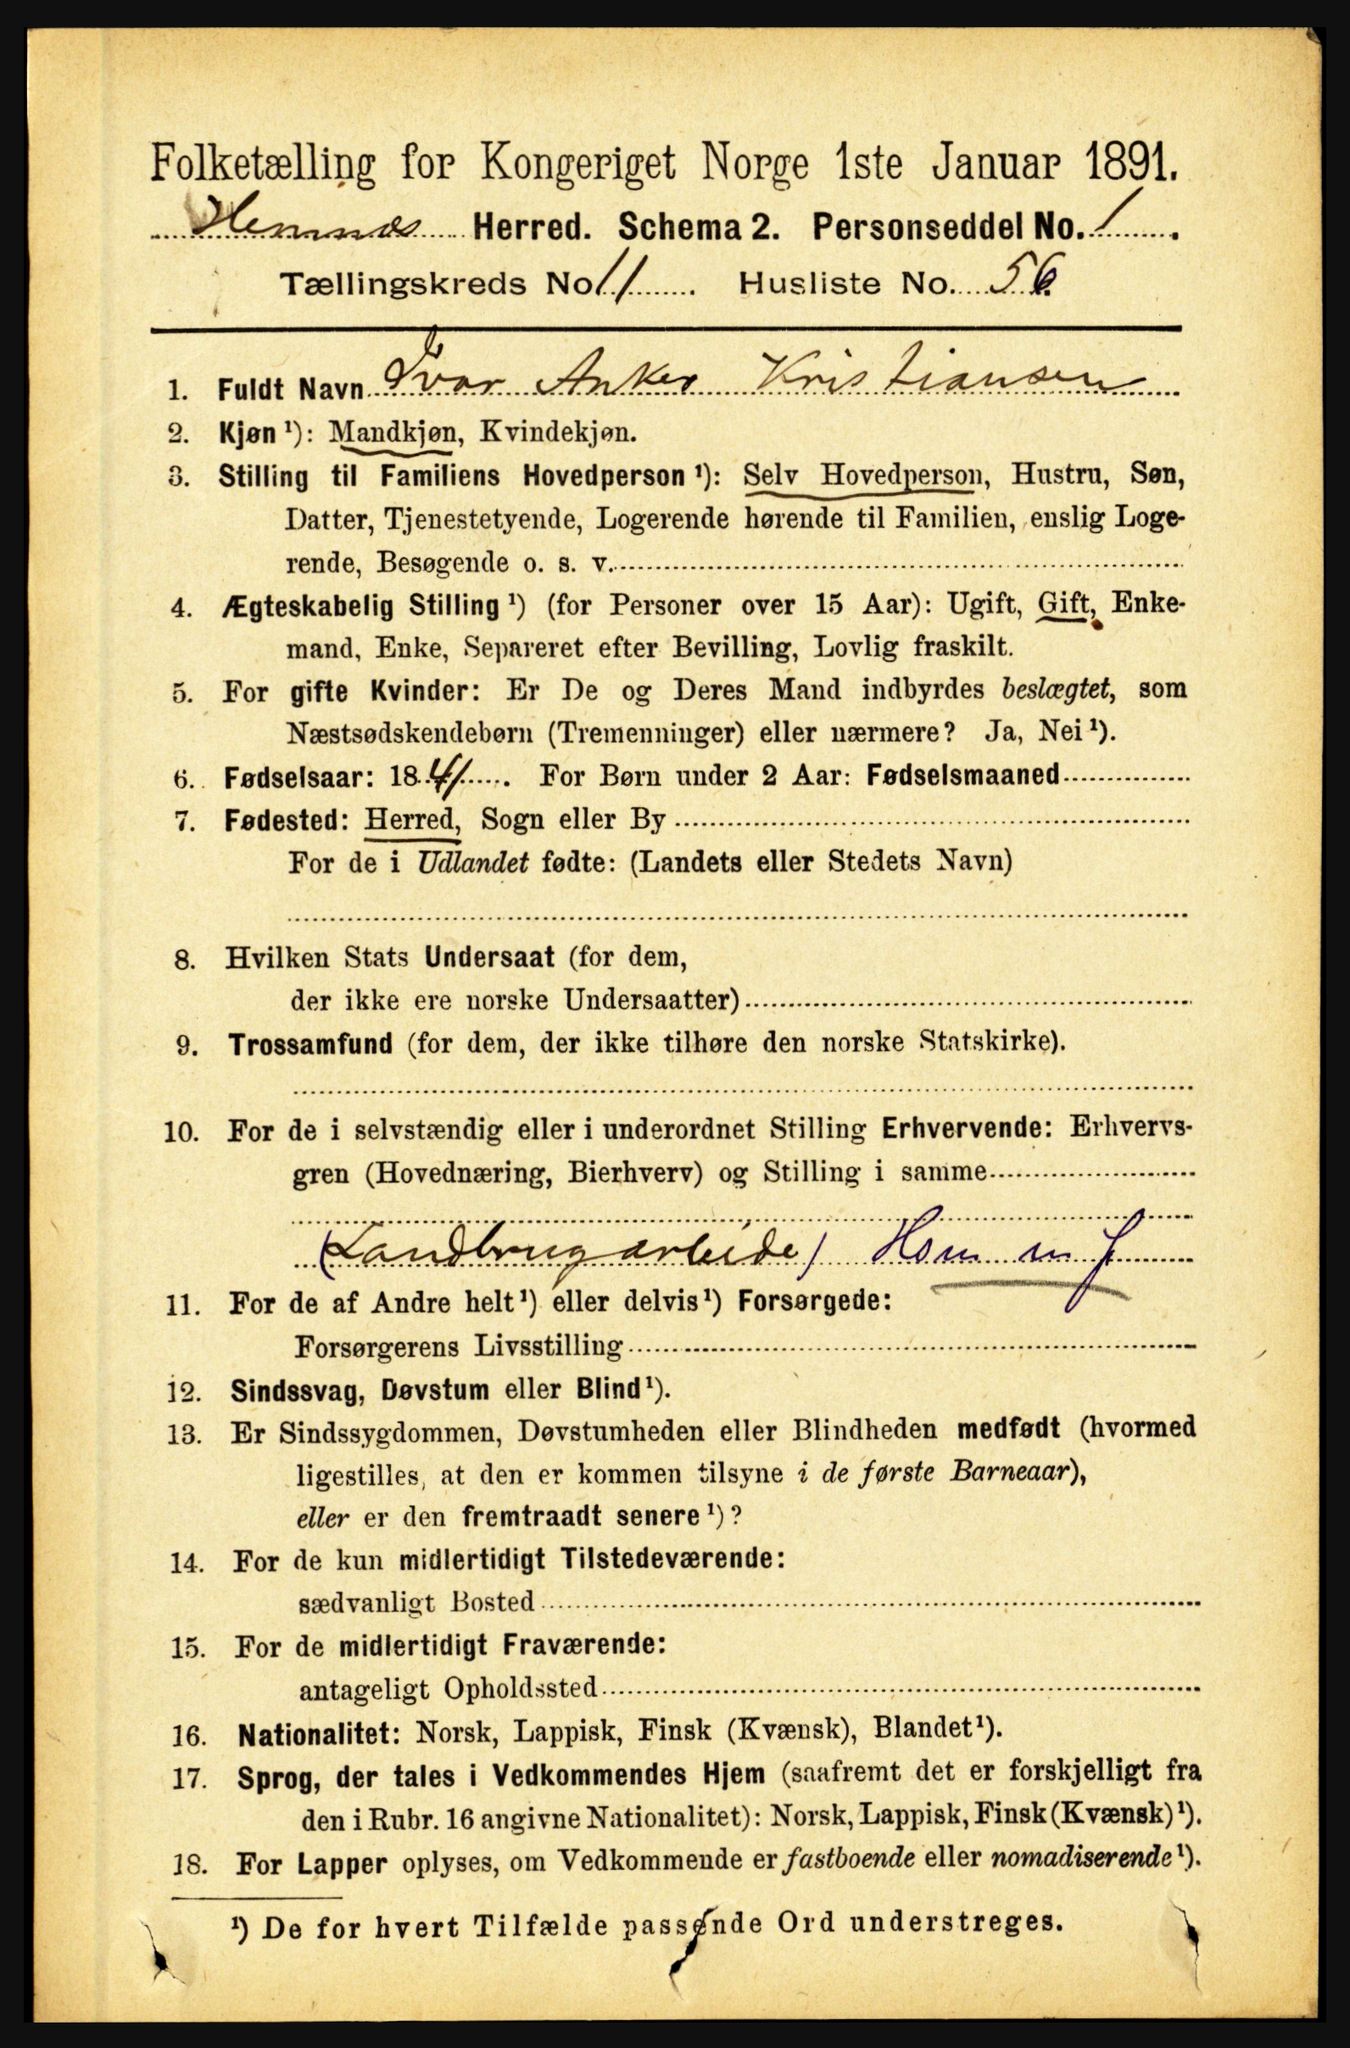 Folketælling for Kongeriget Norge 1ste Januar 1891.
Hemnæs Herred. Schema 2. Personseddel No. 1.
Tællingskreds No 11. Husliste No. 56
1. Fuldt Navn Ivar Anker Kristiansen
2. Kjøn¹): Mandkjøn, Kvindekjøn.
3. Stilling til Familiens Hovedperson¹): Selv Hovedperson, Hustru, Søn,
Datter, Tjenestetyende, Logerende hørende til Familien, enslig Loge-
rende, Besøgende o. s. v.
4. Ægteskabelig Stilling¹) (for Personer over 15 Aar): Ugift, Gift, Enke-
mand, Enke, Separeret efter Bevilling, Lovlig fraskilt.
5. For gifte Kvinder: Er De og Deres Mand indbyrdes beslægtet, som
Næstsødskendebørn (Tremenninger) eller nærmere? Ja, Nei¹).
6. Fødselsaar: 1841. For Børn under 2 Aar: Fødselsmaaned
7. Fødested: Herred, Sogn eller By
For de i Udlandet fødte: (Landets eller Stedets Navn)
8. Hvilken Stats Undersaat (for dem,
der ikke ere norske Undersaatter)
9. Trossamfund (for dem, der ikke tilhøre den norske Statskirke).
10. For de i selvstændig eller i underordnet Stilling Erhvervende: Erhvervs-
gren (Hovednæring, Bierhverv) og Stilling i samme
(Landbrugarbeide) Hsm m J
11. For de af Andre helt¹) eller delvis¹) Forsørgede:
Forsørgerens Livsstilling
12. Sindssvag, Døvstum eller Blind¹).
13. Er Sindssygdommen, Døvstumheden eller Blindheden medfødt (hvormed
ligestilles, at den er kommen tilsyne i de første Barneaar),
eller er den fremtraadt senere¹)?
14. For de kun midlertidigt Tilstedeværende:
sædvanligt Bosted
15. For de midlertidigt Fraværende:
antageligt Opholdssted
16. Nationalitet: Norsk, Lappisk, Finsk (Kvænsk), Blandet¹).
17. Sprog, der tales i Vedkommendes Hjem (saafremt det er forskjelligt fra
den i Rubr. 16 angivne Nationalitet): Norsk, Lappisk, Finsk (Kvænsk)¹).
18. For Lapper oplyses, om Vedkommende er fastboende eller nomadiserende¹).
¹) De for hvert Tilfælde passende Ord understreges.